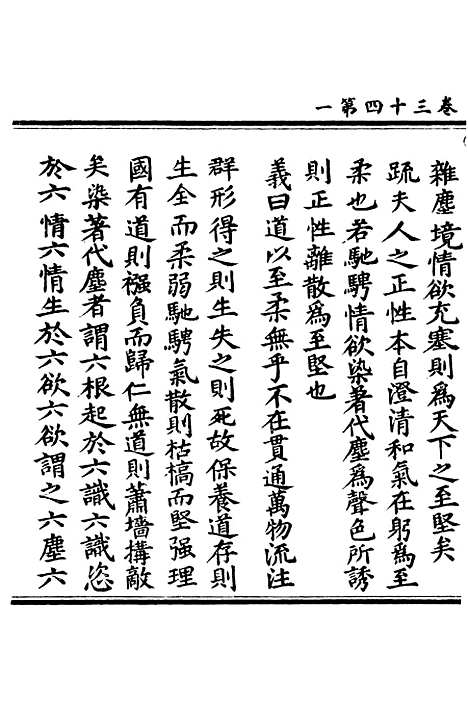 卷三十四第一
雜塵境情欲充塞則為天下之至堅矣
䟽夫人之正性本自澄清和氣在躬為至
柔也若馳騁情欲染著代塵為聲色所誘
則正性離散為至堅也
義曰道以至柔無乎不在貫通萬物流注
群形得之則生失之則死故保養道存則
生全而柔弱馳騁氣散則枯槁而堅强理
國有道則襁負而歸仁無道則蕭墻搆敵
矣染著代塵者謂六根起於六識六識恣
於六情六情生於六欲六欲謂之六塵六